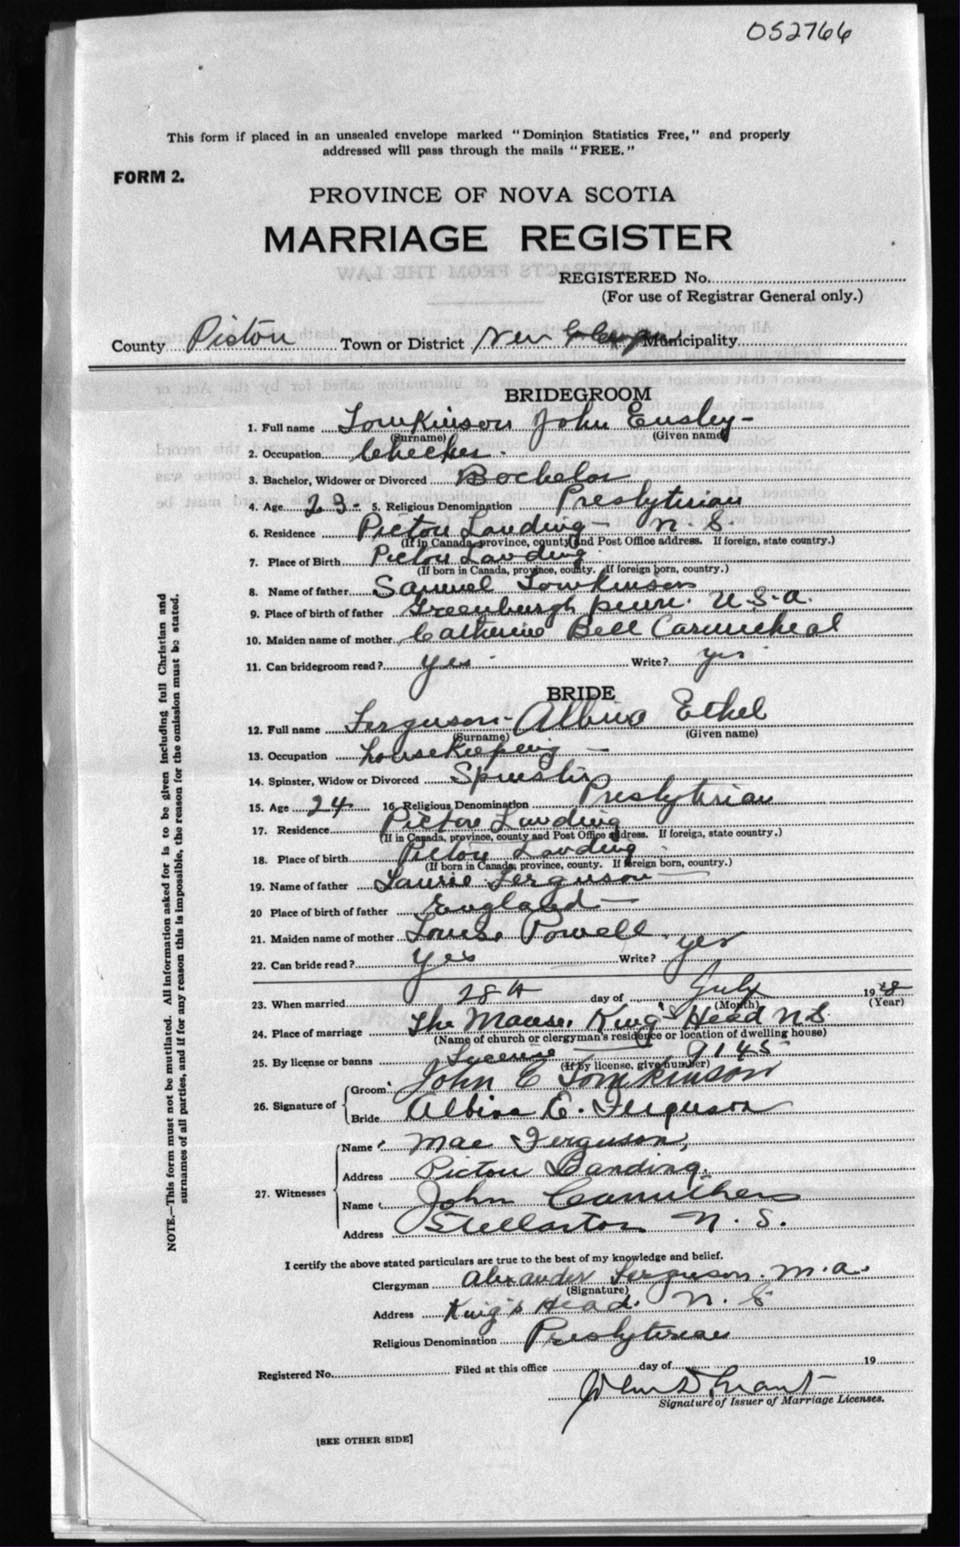 052766
This form if placed in an unsealed envelope marked "Dominion Statistics Free," and properly
addressed will pass through the mails "FREE."
FORM 2.
PROVINCE OF NOVA SCOTIA
MARRIAGE REGISTER
REGISTERED No.
(For use of Registrar General only.)
County Pictou Town or District New Municipality
BRIDEGROOM
1. Full name Tomkinson John Ensley
(Surname) (Given name)
2. Occupation Checker
3. Bachelor, Widower or Divorced Bachelor
4. Age 23 5. Religious Denomination Presbyterian
6. Residence Pictou Landing N S
(If in Canada, province, county and Post Office address. If foreign, state country.)
7. Place of Birth Pictou Landing
(If born in Canada, province, county. If foreign born, country.)
8. Name of father Samuel Tomkinson
9. Place of birth of father Greenburgh penn. U.S.A.
10. Maiden name of mother Catherine Bell Carmicheal
11. Can bridegroom read? yes Write? yes
BRIDE
12. Full name Ferguson - Albina Ethel
(Surname) (Given name)
13. Occupation housekeeping
14. Spinster, Widow or Divorced Spinster
15. Age 24 16. Religious Denomination Presbyterian
17. Residence Pictou Landing
(If in Canada, province, county and Post Office address. If foreign, state country.)
18. Place of birth Pictou Landing
(If born in Canada, province, county. If foreign born, country.)
19. Name of father Laurie Ferguson
20 Place of birth of father England
21. Maiden name of mother Louise Powell
22. Can bride read? yes Write? yes
23. When married 28th day of July 19
(Month) (Year)
24. Place of marriage The Manse, King's Head N.S.
(Name of church or clergyman's residence or location of dwelling house)
25. By license or banns License 9145
(If by license, give number)
26. Signature of Groom John E Tomkinson
Bride Albina E. Ferguson
27. Witnesses Name Mae Ferguson,
Address Pictou Landing.
Name John Carruthers
Address Stellarton N. S.
I certify the above stated particulars are true to the best of my knowledge and belief.
Clergyman Alexander Ferguson. M.A.
(Signature)
Address King's Head. N. S
Religious Denomination Presbyterian
Registered No. Filed at this office day of 19
John D Grant
Signature of Issuer of Marriage Licenses.
[SEE OTHER SIDE]
NOTE.—This form must not be mutilated. All information asked for is to be given including full Christian and
surnames of all parties, and if for any reason this is impossible, the reason for the omission must be stated.